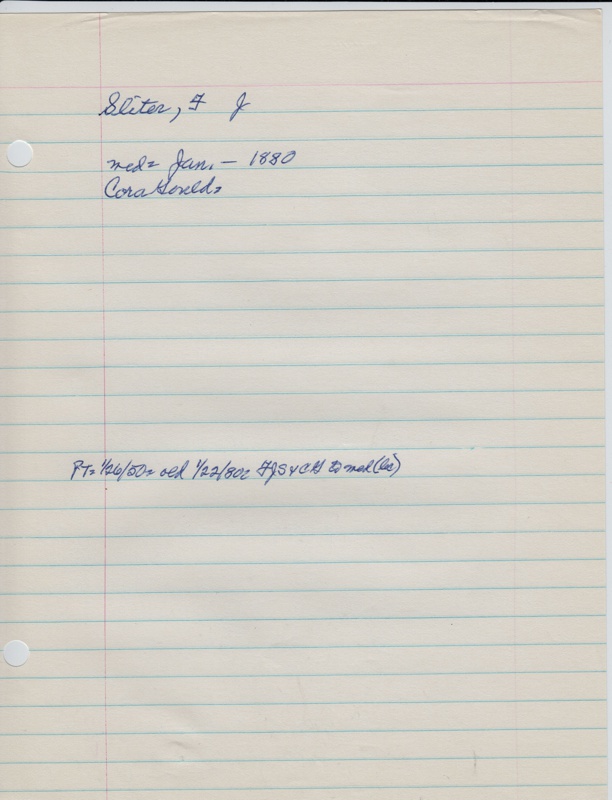 Sliter, F J
med= Jan. - 1880
Cora Gould=
PT= 1/26/50= old 1/22/80= FJS & CG to med (lic)